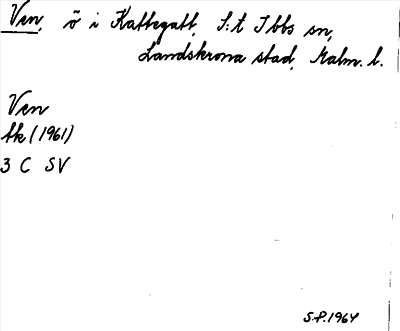 Ven, ö i Kattegatt, S:t Ibbs sn,
Landskrona stad, Malm. l.
Ven
tk (1961)
3 C SV
S.P. 1964